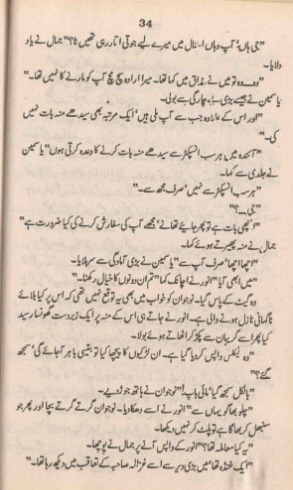 34
”جی ہاں‘ آپ وہاں اسٹال میں میرے لیے جوتی اتار رہی تھیں نا؟“ جمال نے یاد
دلایا۔
”وہ۔ وہ تو میں نے مذاق میں کہا تھا۔ میرا ارادہ سچ مچ آپ کو مارنے کا نہیں تھا۔“
یاسمین نے جیسے بڑی بے چارگی سے بولی۔
”اور اس کے علاوہ جب سے آپ ملی ہیں‘ ایک مرتبہ بھی سیدھے منہ بات نہیں
کی۔“
”آئندہ میں ہر سب انسپکٹر سے سیدھے منہ بات کرنے کا وعدہ کرتی ہوں“ یاسمین
نے جلدی سے کہا۔
”ہر سب انسپکٹر سے نہیں‘ صرف مجھ سے۔“
”جی۔؟“
”اچھی بات ہے تو پھر جائیے تھانے‘ مجھے آپ کی سفارش کرنے کی کیا ضرورت ہے“
جمال نے منہ پھیرتے ہوئے کہا۔
”اچھا اچھا‘ صرف آپ سے“ یاسمین نے بڑی آمادگی سے سر ہلایا۔
”میں ابھی آیا“ انور نے اچانک کہا ”تم ان دونوں کا خیال رکھنا۔“
وہ گیٹ کے پاس گیا۔ نوجوان کو خواب میں بھی یہ توقع نہیں تھی کہ اس پر کیا بلائے
ناگہانی نازل ہونے والی ہے۔ انور نے جاتے ہی اس کے منہ پر ایک زبردست گھونسا رسید
کیا پھر اسے گریبان سے پکڑ کر اٹھاتے ہوئے بولا۔
”وہ نیکلس واپس کر دیا گیا ہے۔ ان لڑکیوں کا پیچھا کیا تو بتیسی باہر آجائے گی‘ سمجھ
گئے؟“
”بالکل سمجھ گیا‘ مائی باپ!“ نوجوان نے ہاتھ جوڑ دیے۔
”چلو بھاگو یہاں سے“ انور نے اسے دھکا دیا۔ نوجوان گرتے گرتے بچا اور پھر جو
سنبھل کر بھاگا ہے تو پلٹ کر نہیں دیکھا۔
”یہ کیا معاملہ تھا؟“ انور کے واپس آنے پر جمال نے پوچھا۔
”ایک غنڈہ تھا‘ میں بڑی دیر سے اسے غزالہ صاحبہ کے تعاقب میں دیکھ رہا تھا۔“